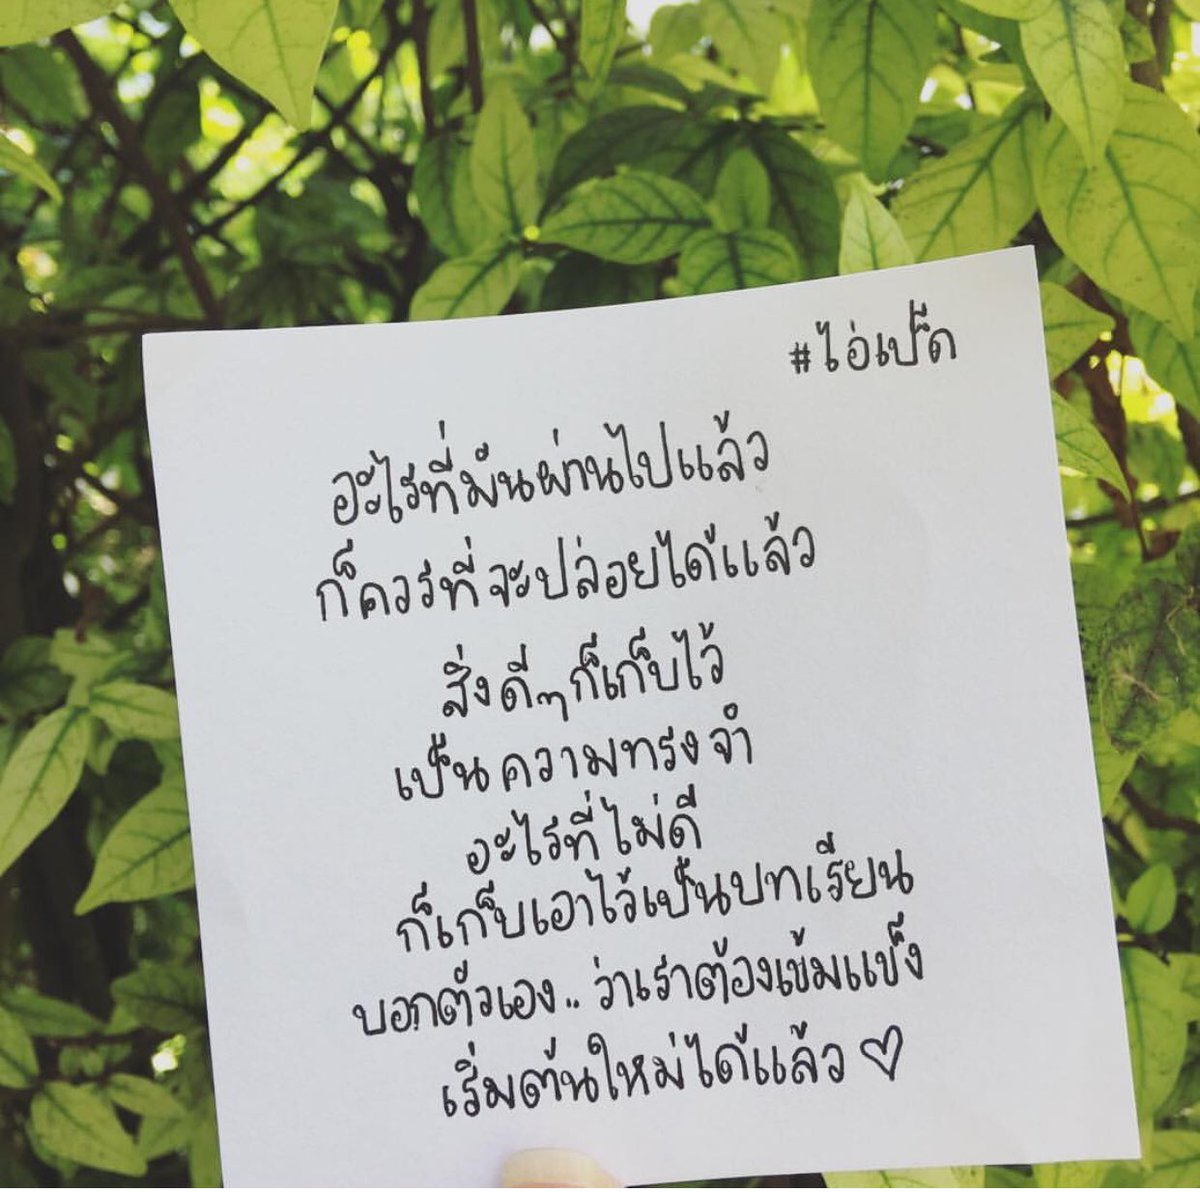 #ไอ่เป็ด
อะไรที่มันผ่านไปแล้ว
ก็ควรที่จะปล่อยได้แล้ว
สิ่งดีๆก็เก็บไว้
เป็นความทรงจำ
อะไรที่ไม่ดี
ก็เก็บเอาไว้เป็นบทเรียน
บอกตัวเอง.. ว่าเราต้องเข้มแข็ง
เริ่มต้นใหม่ได้แล้ว ♡